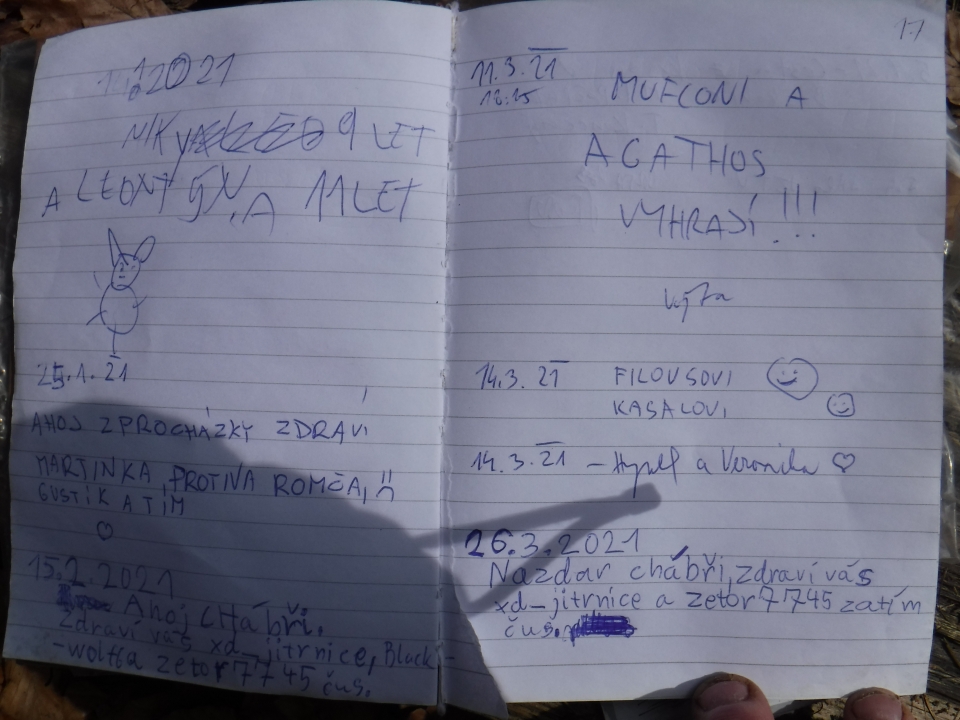 1.1.2021
NIKY 9 LET
A LEONTÝN.A 11 LET
25.1.21
AHOJ Z PROCHÁZKY ZDRAVÍ
MARTINKA, PROTIVA ROMČA,
GUSTÍK A TÍM
15.2.2021
Ahoj CHábři.
Zdraví vás xd_jitrnice, Black-
-wolf a zetor7745 čus.
17
11.3.21
MUFLONI A
AGATHOS
VYHRAJÍ!!!
14.3.21 FILOUSOVI
KASALOVI
14.3.21 - a Veronika
26.3.2021
Nazdar chábři, zdraví vás
xd_jitrnice a zetor7745 zatím
čus.